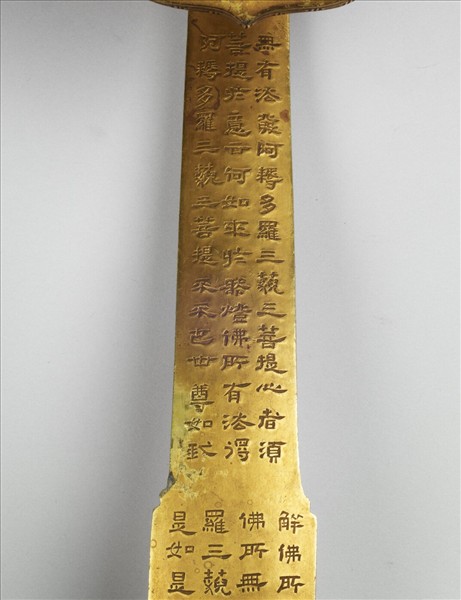 無有法發阿耨多羅三藐三菩提心者須
菩提於意云何如來於然燈佛所有法得
阿耨多羅三藐三菩提不不也世尊如我
解佛所
佛所無
羅三藐
是如是